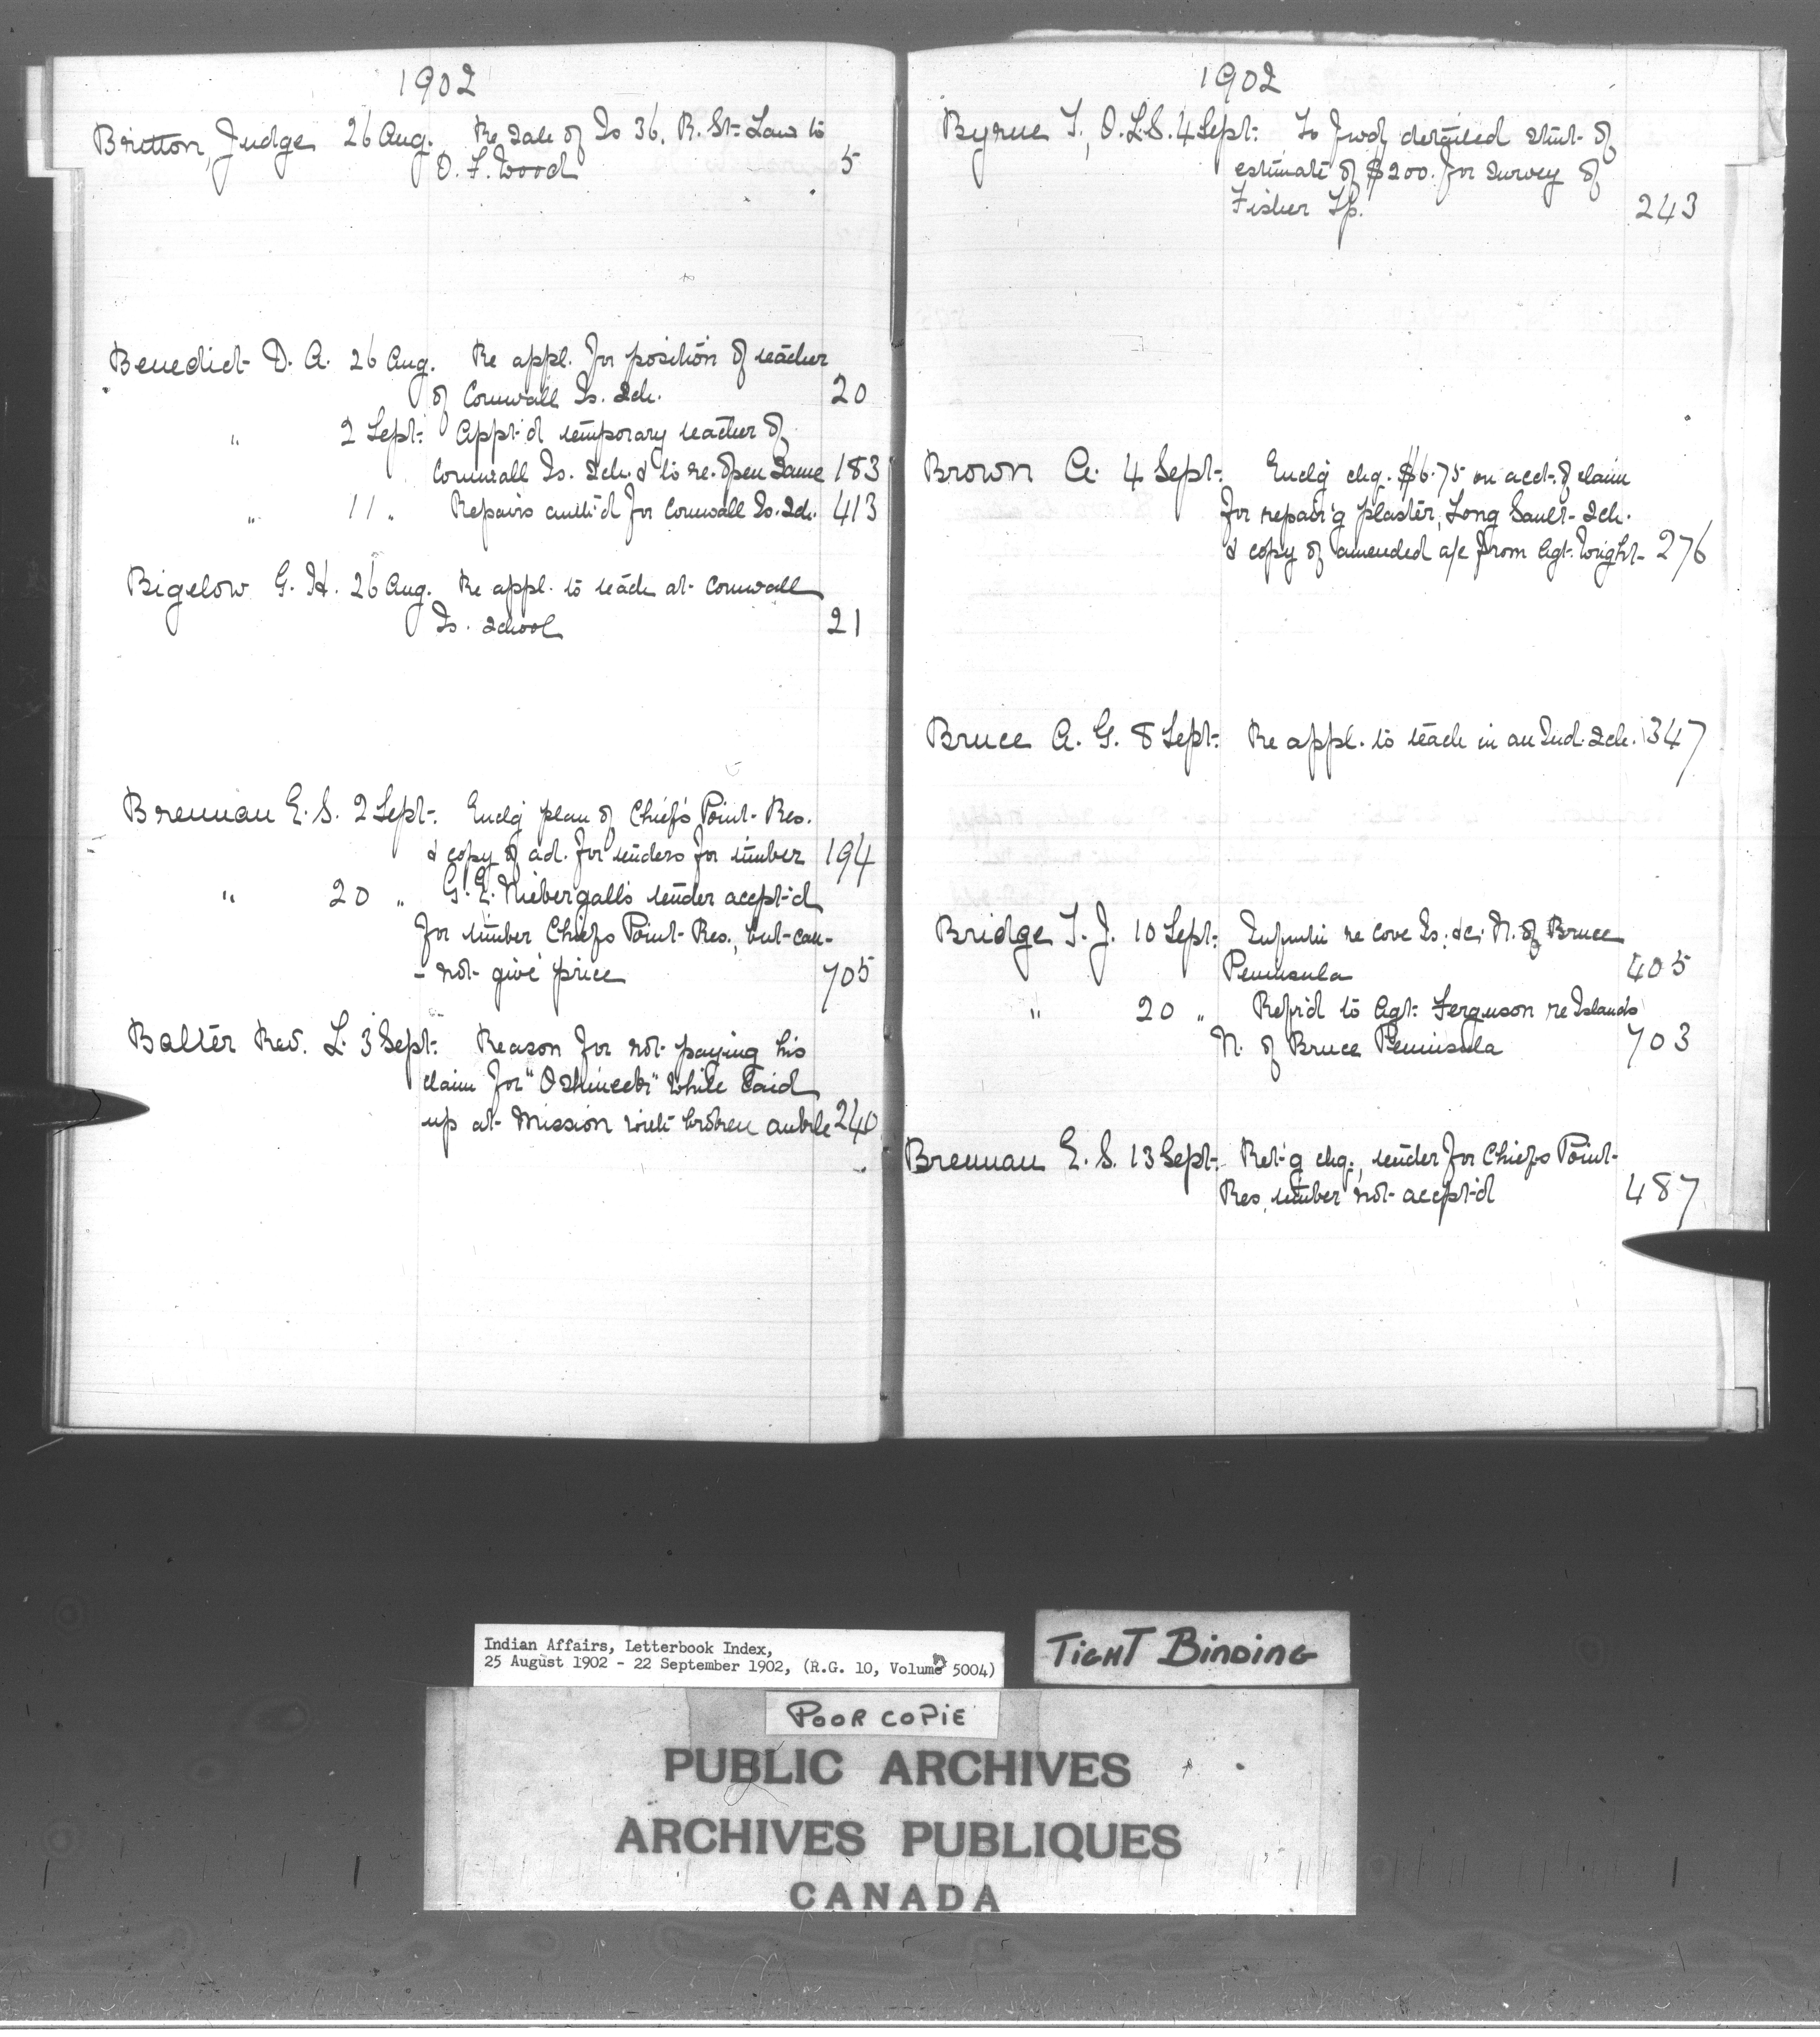 1902
Britton, Judge 26 Aug. Re Sale of Is 36, R. St. Law to
O. F. Wood 5
Benedict D. A. 26 Aug. Re appl. for position of teacher
of Cornwall Is. Sch. 20
" 2 Sept. Appt'd temporary teacher of
Cornwall Is. Sch. & to re-open same 183
" 11 " Repairs auth'd for Cornwall Is. Sch. 413
Bigelow G. H. 26 Aug. Re appl. to teach at Cornwall
Is. School 21
Brennan E. S. 2 Sept. Enclg plan of Chief's Point Res.
& copy of ad. for tenders for timber 194
" 20 " G. E. Niebergall's tender accept'd
for timber Chiefs Point Res., but can-
- not give price 705
Balter Rev. L. 3 Sept. Reason for not paying his
claim for " " while laid
up at Mission with broken ankle 240
1902
Byrne T., O.L.S. 4 Sept. To fwd detailed stmt. of
estimate of $200. for survey of
Fisher Tp. 243
Brown A. 4 Sept. Enclg chq. $6.75 on acct. of claim
for repair'g plaster, Long Sault Sch.
& copy of amended a/c from Agt. Wright 276
Bruce A. G. 8 Sept. Re appl. to teach in an Ind. Sch. 347
Bridge T. J. 10 Sept. re Cove Is. &c. N. of Bruce
Peninsula 405
" 20 " Ref'd to Agt. Ferguson re Islands
N. of Bruce Peninsula 703
Brennan E. S. 13 Sept. Ret'g chq., tender for Chiefs Point
Res. timber not accept'd 487
Indian Affairs, Letterbook Index,
25 August 1902 - 22 September 1902, (R.G. 10, Volume 5004)
TIGHT BINDING
POOR COPIE
PUBLIC ARCHIVES
ARCHIVES PUBLIQUES
CANADA